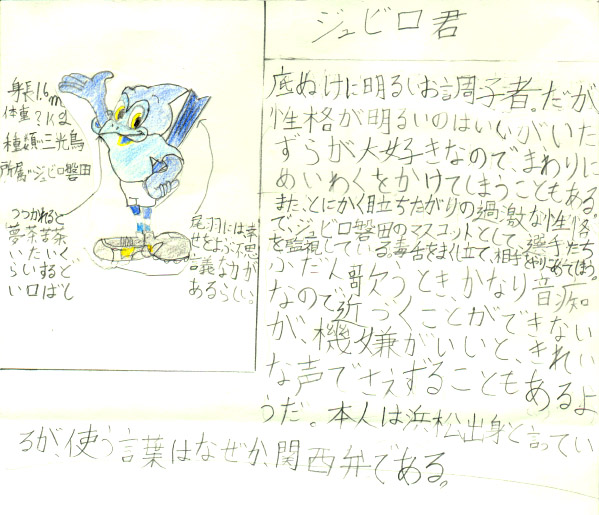 ジュビロ君
身長1.6m
体重?kg
種類:三光鳥
所属:ジュビロ磐田
つつかれると
夢茶苦茶
いたいく
らいするど
い口ばし
尾羽には幸
せをよぶ不思
議な力が
あるらしい。
底ぬけに明るいお調子者。だが
性格が明るいのはいいがいた
ずらが大好きなので、まわりに
めいわくをかけてしまうこともある。
また、とにかく目立ちたがりの過激な性格
で、ジュビロ磐田のマスコットとして、選手たち
を監視している。毒舌をまくし立て、相手をやりこめてしまう。
ふだん歌うとき、かなり音痴
なので、近づくことができない
が、機嫌がいいと、きれい
な声でさえずることもあるよ
うだ。本人は浜松出身と言ってい
るが、使う言葉はなぜか、関西弁である。